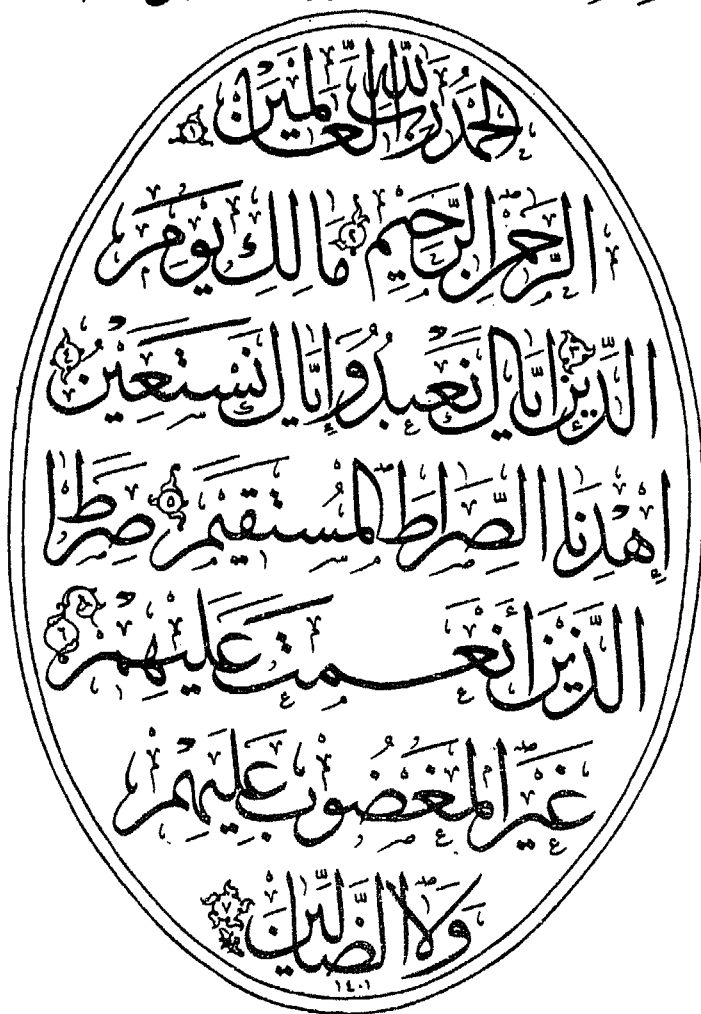 الْحَمْدُ لِلّٰهِ رَبِّ الْعَالَمِينَ ١
الرَّحْمٰنِ الرَّحِيمِ ٢ مَالِكِ يَوْمِ
الدِّينِ ٣ إِيَّاكَ نَعْبُدُ وَإِيَّاكَ نَسْتَعِينُ ٤
إِهْدِنَا الصِّرَاطَ الْمُسْتَقِيمَ ٥ صِرَاطَ
الَّذِينَ أَنْعَمْتَ عَلَيْهِمْ ٦
غَيْرِ الْمَغْضُوبِ عَلَيْهِمْ
وَلَا الضَّالِّينَ ٧
١٤٠١